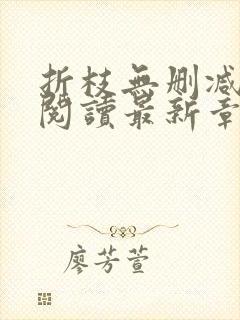 折枝無刪减
閱讀最新章
廖芳萱